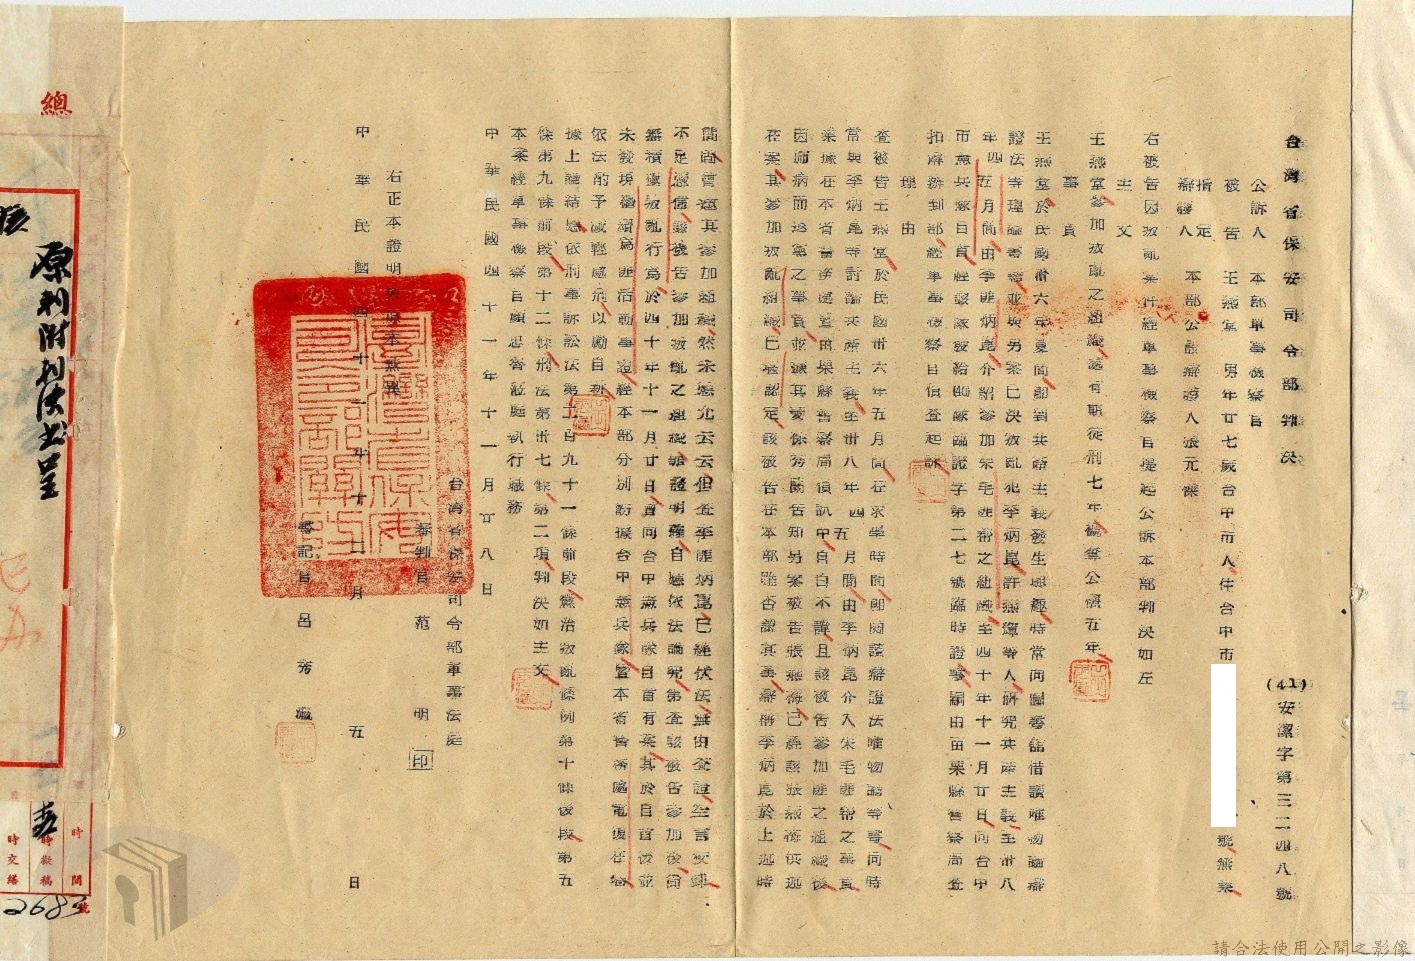 台灣省保安司令部判決
(41)安潔字第三二四八號
公訴人 本部軍事檢察官
被告 王燕堂 男年廿七歲台中市人住台中市 號無業
指定辯護人 本部公設辯護人張元傑
右被告因叛亂案件經軍事檢察官提起公訴本部判決如左
主文
王燕堂參加叛亂之組織處有期徒刑七年褫奪公權五年
事實
王燕堂於民國卅六年夏間即對共產主義發生興趣時常向圖書館借讀唯物論辯
證法等理論書籍並與另案已決叛亂犯李炳崑許燕輝等人研究共產主義至卅八
年四五月間由李匪炳崑介紹參加朱毛匪幫之組織至四十年十一月廿日向台中
市憲兵隊自首經該隊發給 臨證字第二七號臨時證 嗣由苗栗縣警察局查
扣解辦到部經軍事檢察官偵查起訴
理由
查被告王燕堂於民國卅六年五月間在求學時間即閱讀辯證法唯物論等書同時
常與李炳崑等討論共產主義至卅八年四五月間由李炳崑介入朱毛匪幫之事實
業據在本省警務處暨苗栗縣警察局偵訊中自白不諱且該被告參加匪之組織後
因肺病而返家之事實並據其妻徐秀蘭告知另案被告張燕梅已經該張燕梅供述
在案其參加叛亂組織已堪認定該被告在本部雖否認其事辯稱李炳崑於上述時
間尚曾邀其參加組織然未應允云云但查李匪炳崑已經伏法無由查證空言狡辯
不足憑信該被告參加叛亂之組織罪證明確自應依法論究第查該被告參加後尚
無積極叛亂行為於四十年十一月廿日曾向台中憲兵隊自首有案其於自首後並
未發現繼續為匪活動事證經本部分別訪據台中憲兵隊暨本省警務處電復在卷
依法酌予減輕處刑以勵自新
據上論結應依刑事訴訟法第二百九十一條前段懲治叛亂條例第十條後段第五
條第九條前段第十二條刑法第卅七條第二項判決如主文
本案經軍事檢察官顧忠齊蒞庭執行職務
中華民國四十一年十一月廿八日
台灣省保安司令部軍事法庭
審判官 范明 印
右正本證明與原本無異
書記官 呂秀
中華民國四十一年十二月五日
總
原判附判決書呈
時 間
時擬稿
時交繕
2683號
請合法使用公開之影像